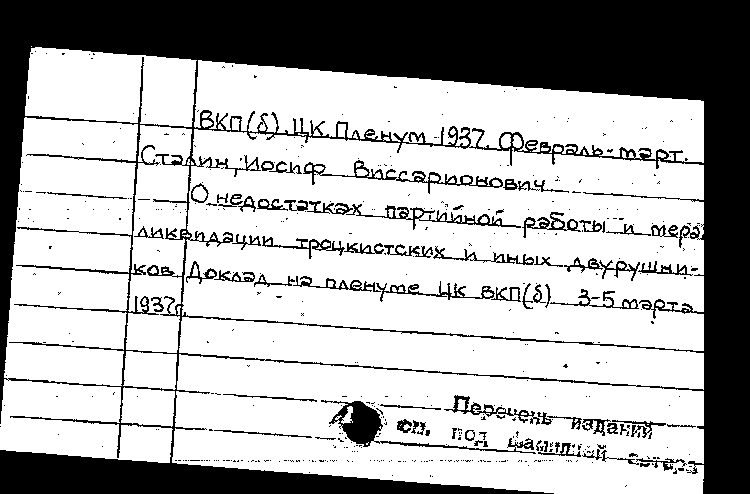 ВКП(б). ЦК. Пленум. 1937. Февраль-март.
Сталин, Иосиф Виссарионович
О недостатках партийной работы и мерах
ликвидации троцкистских и иных двурушни-
ков. Доклад на пленуме ЦК ВКП(б) 3-5 марта
1937г.
Перечень изданий
см. под фамилией автора